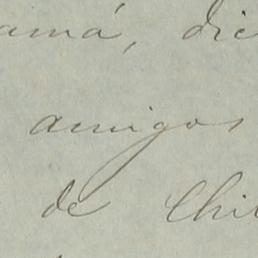 amá, dic
amigos
de Chil